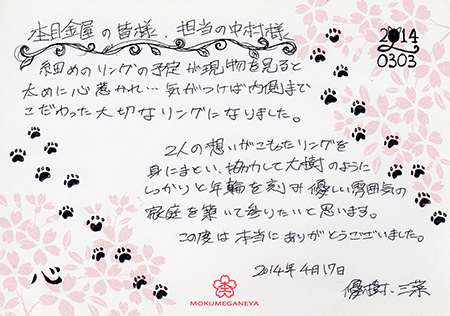 杢目金屋の皆様、担当の中村様
2014
0303
細めのリングの予定が現物を見ると
太めに心惹かれ…気がつけば内側まで
こだわった大切なリングになりました。
2人の想いがこもったリングを
身にまとい、協力して大樹のように
しっかりと年輪を刻み優しい雰囲気の
家庭を築いて参りたいと思います。
この度は本当にありがとうございました。
2014年4月17日
優樹、三菜
心
MOKUMEGANEYA